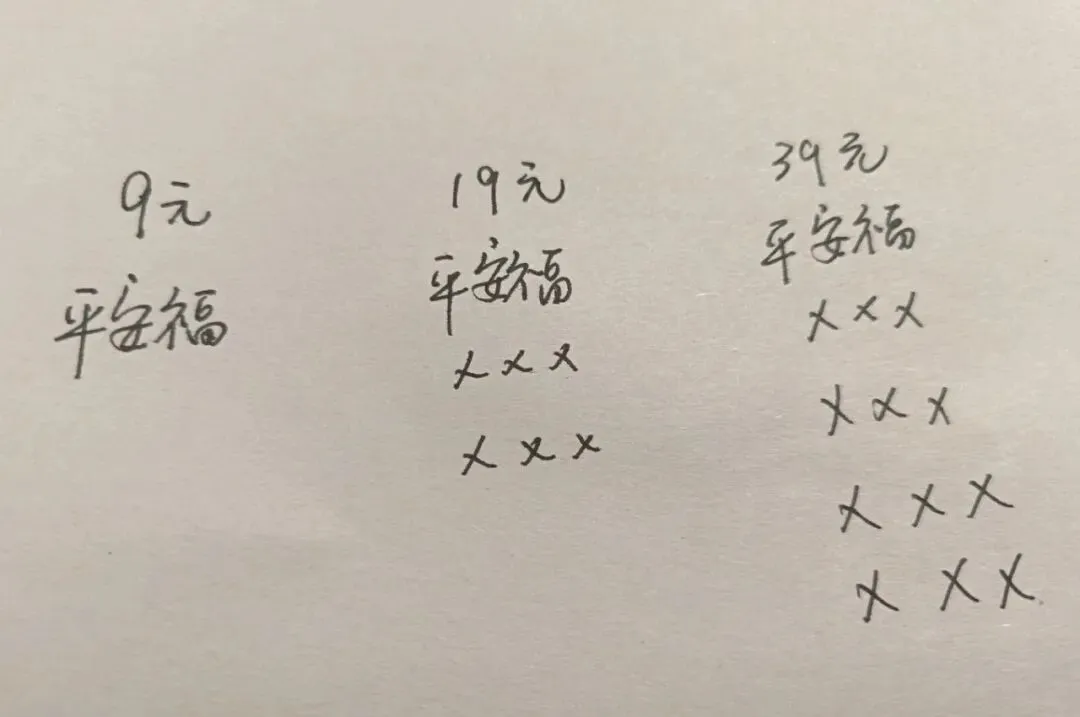 9元
平安福
19元
平安福
×××
×××
39元
平安福
×××
×××
×××
×××